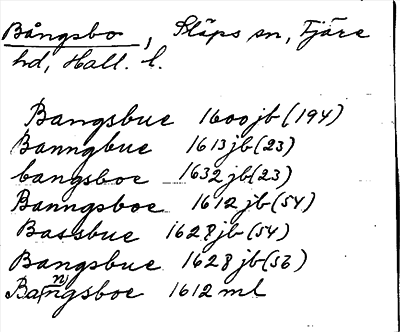 Bångsbo, Släps sn, Fjäre
hd, Hall. l.
Bangsbue 1600 jb (194)
Banngbue 1613 jb (23)
bangsboe 1632 jb (23)
Banngsboe 1612 jb (54)
Bassbue 1628 jb (54)
Bangsbue 1628 jb (56)
Ba(n)ngsboe 1612 ml